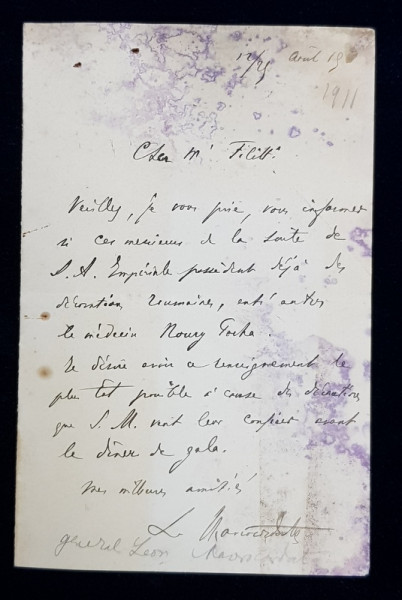 12/25 Avril 19
1911
Cher Mr Filitti
Veuillez, je vous prie, vous informer
si ces messieurs de la suite de
S. A. Impériale possèdent déjà des
décorations roumaines, entre autres
le médecin Noury Pacha.
Je désire avoir ce renseignement le
plus tôt possible à cause des décorations
que S. M. veut leur conférer avant
le dîner de gala.
mes meilleures amitiés
L. Mavrocordato
general Leon Mavrocordat